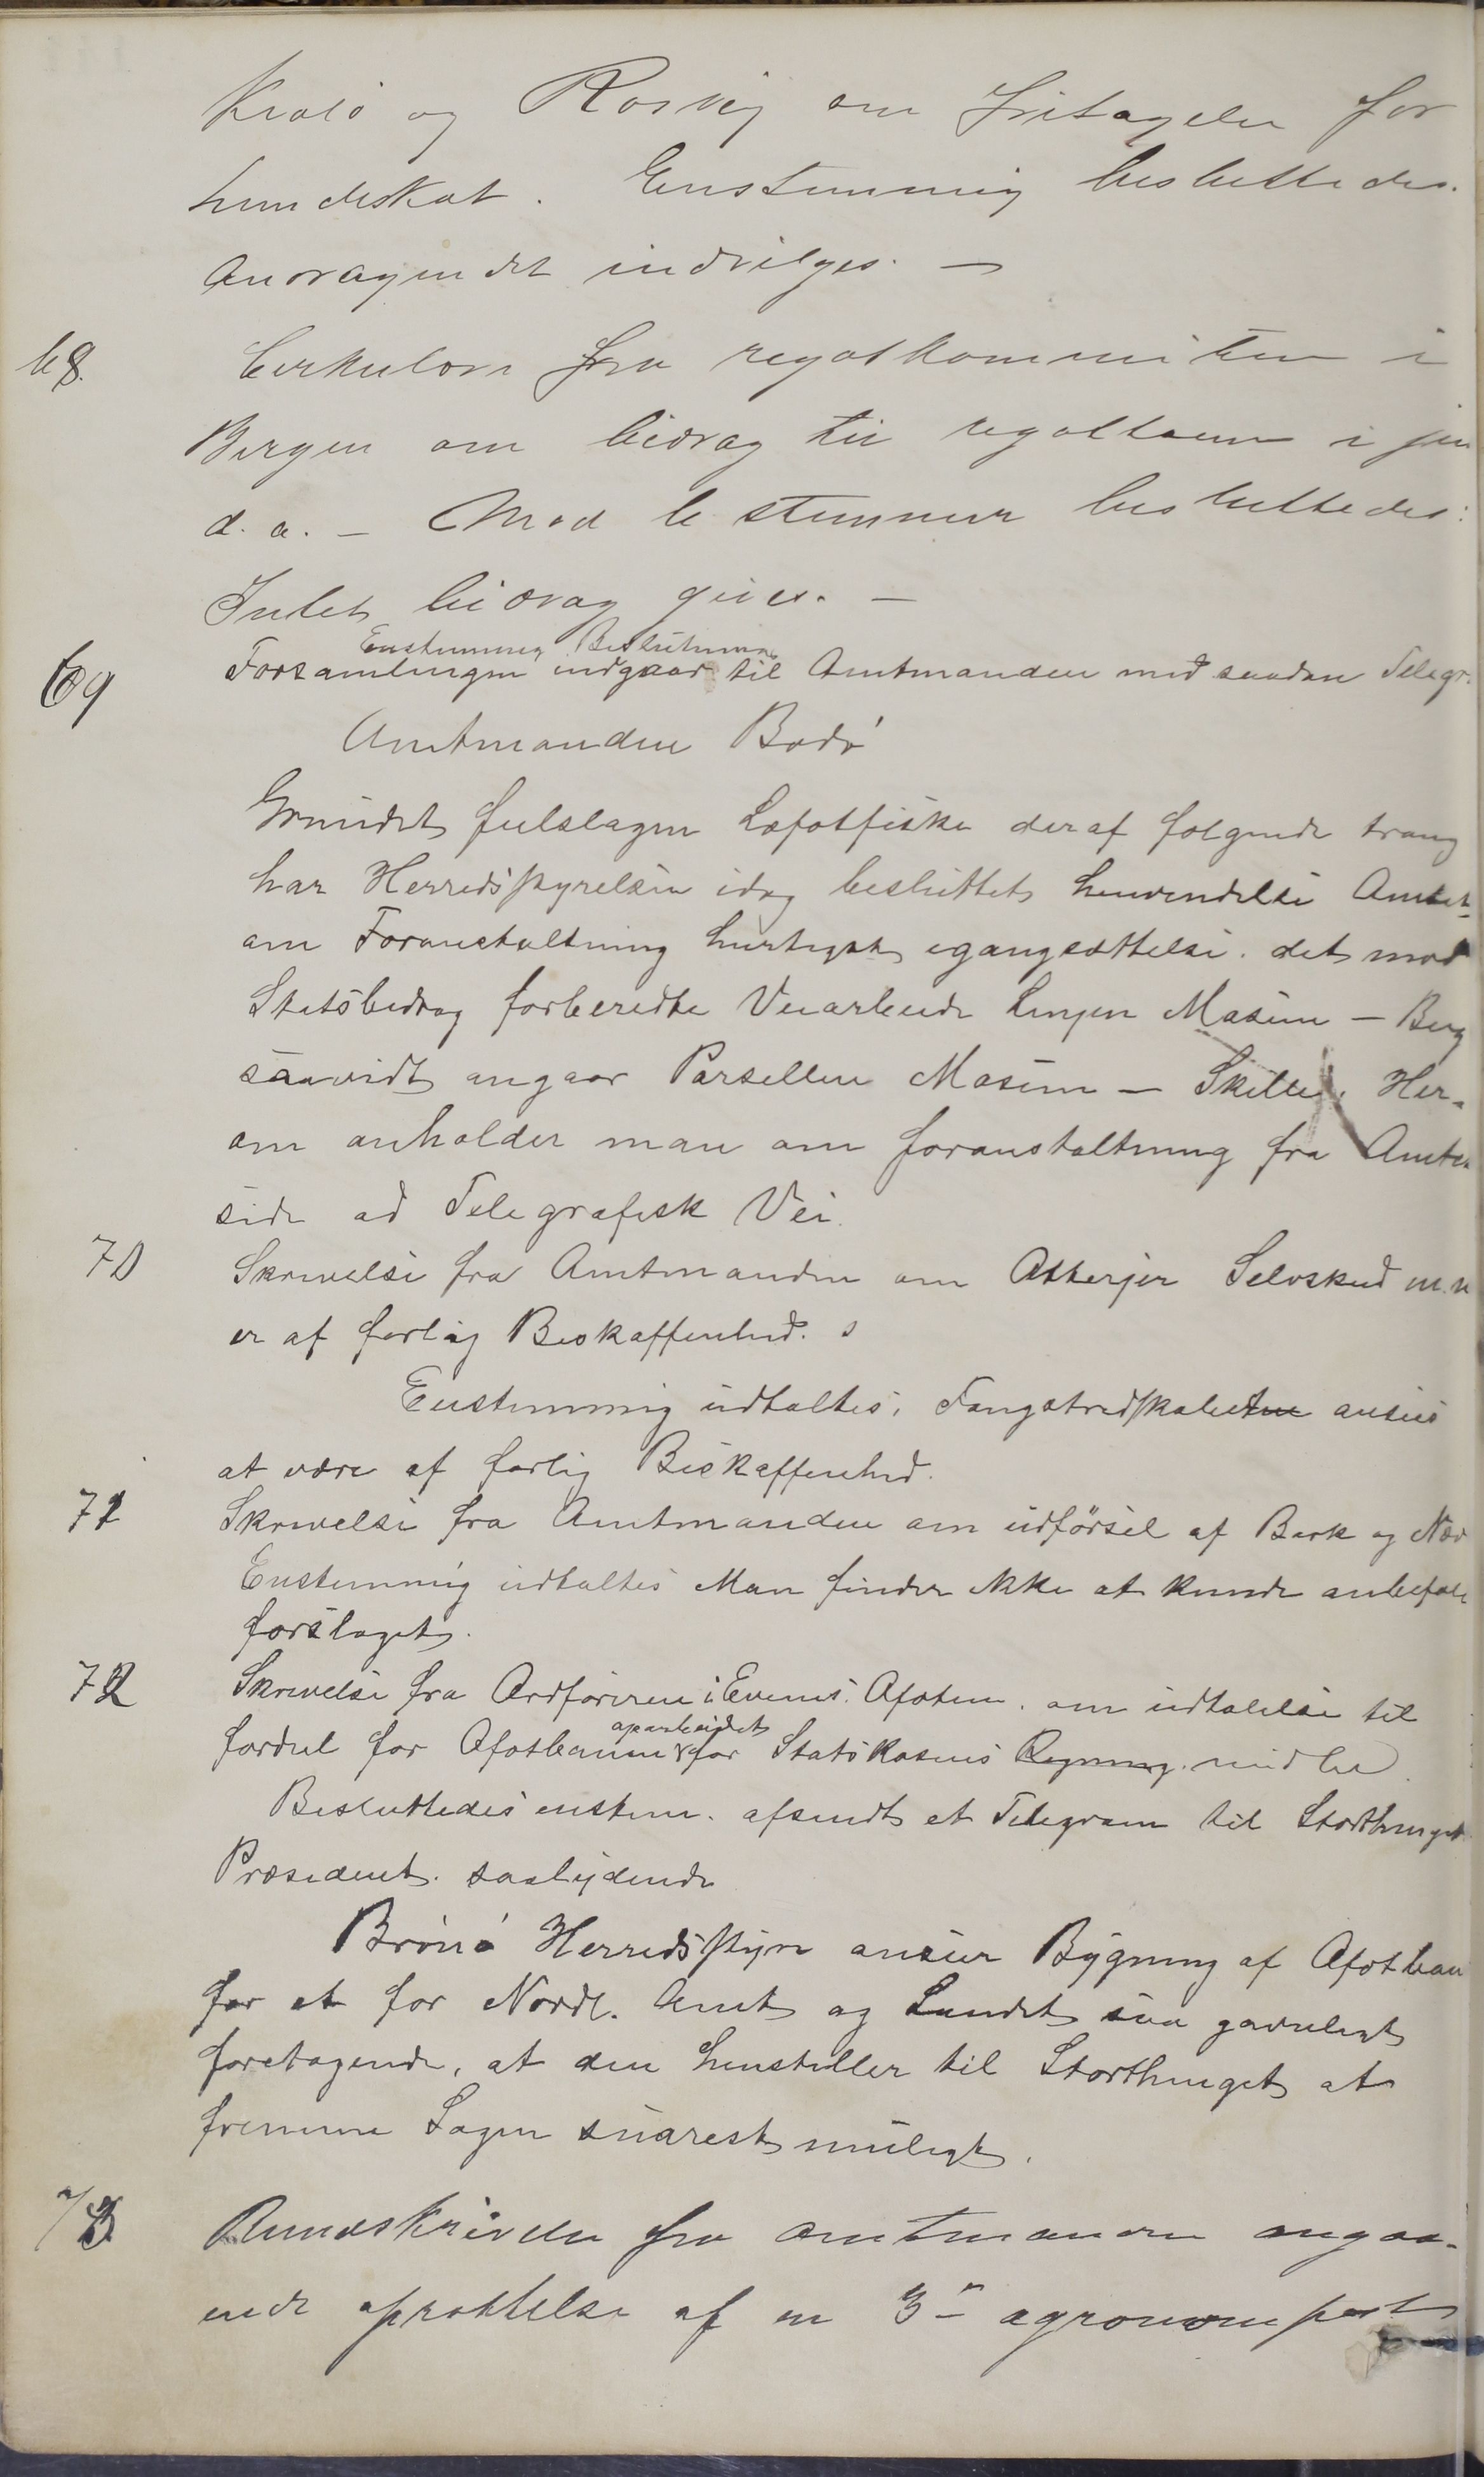 Kvalø og Rosvig om fritagelse for
hundeskat. Enstemmig besluttedes.
Andragendet indvilges. —
68. Cirkulære fra regatkommiteen i
Bergen om bidrag til regattaen i juni
d. a. — Mod 6 stemmer besluttedes:
Intet bidrag gives. —
Enstemmig Beslutning
69 Forsamlingen indgaar til Amtmanden med saadan Telegr.
Amtmanden Bodø
Grundet feilslagen Lofotfiske deraf følgende trang
har Herredsstyrelsen idag besluttet henvendelse Amtet
om Foranstaltning hurtigst igangsættelse. det med
Statsbidrag forberedte Veiarbeide Linjen Mosem — Berg
saavidt angaar Parsellen Mosem — Skille. Her-
om anholder man om foranstaltning fra Amtets
side ad Telegrafisk Vei.
70 Skrivelse fra Amtmanden om Otterjer Selvskud m. m
er af farlig Beskaffenhed.
Enstemmig udtaltes, Fangstredskabet ansees
at være af farlig Beskaffenhed.
71 Skrivelse fra Amtmanden om udførsel af Bark og Næv
Enstemmig udtaltes Man finder ikke at kunde anbefale
forslaget.
72 Skrivelse fra Ordføreren i Evenes. Ofoten. om udtalelse til
oparbeidet
fordel for Ofotbanen for Statskasens Regning. midler
Besluttedes enstem. afsendt et Telegram til Storthinget
Præsident. saalydende
Brønø Herredsstyre anseer Bygning af Ofotban
for et for Nordl. Amt og Landet saa gavnligt
foretagende, at den henstiller til Storthinget at
fremme Sagen snarest muligt.
73 Rundskrivelse fra amtmanden angaa-
ende oprettelse af en 3- agronompost